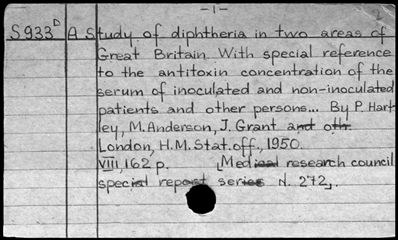 -1-
S933 D A study of diphtheria in two areas of
Great Britain. With special reference
to the antitoxin concentration of the
serum of inoculated and non-inoculated
patients and other persons... By P. Hart-
ley, M. Anderson, J. Grant and oth.
London, H.M. Stat. off., 1950.
VIII, 162 p. [Medical research council
special report series N. 272].